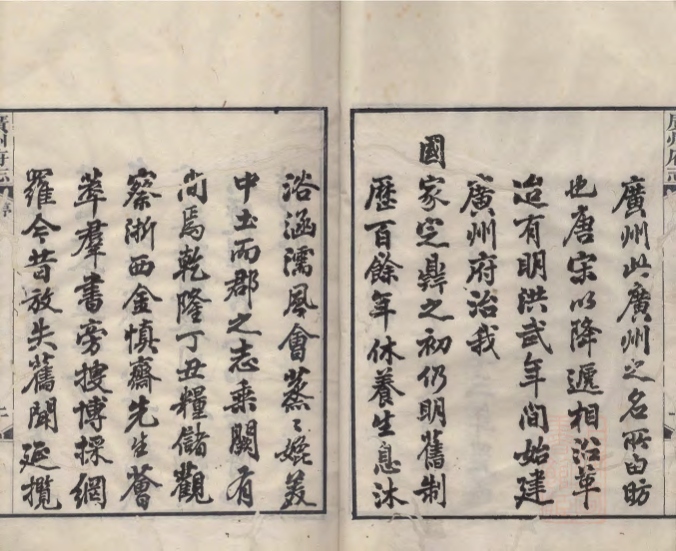 廣州府志
廣州此廣州之名所由昉
也唐宋以降遞相沿革
迨有明洪武年間始建
廣州府治我
國家定鼎之初仍明舊制
歷百餘年休養生息沐
浴涵濡風會蒸〻媲美
中土而郡之志乘闕有
間焉乾隆丁丑糧儲觀
察浙西金慎齋先生薈
萃羣書旁搜博採網
羅今昔放失舊聞延攬
廣州府志
序